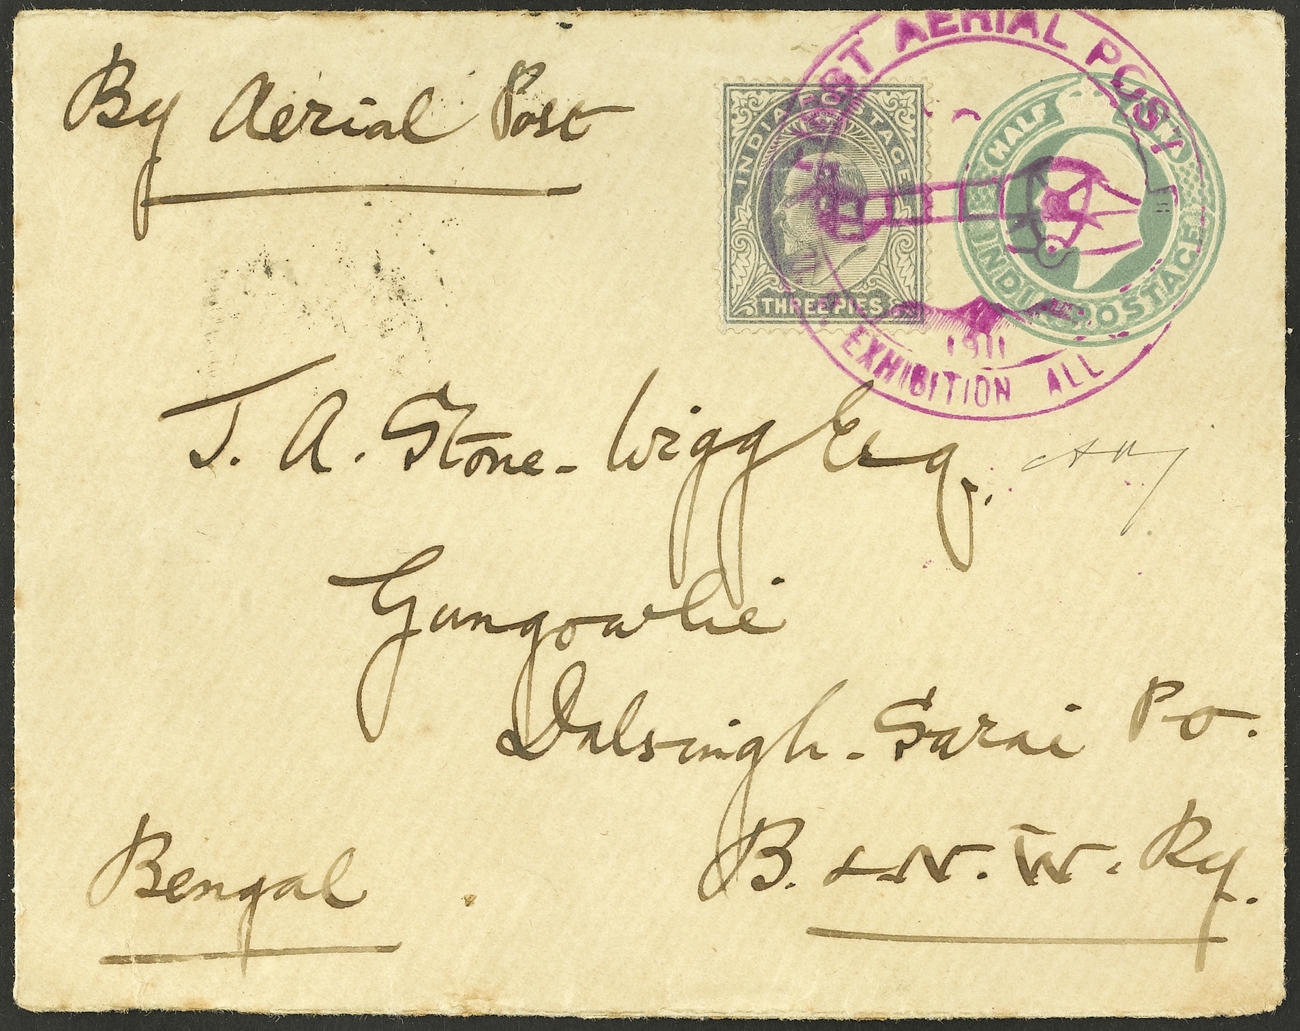 By Aerial Post
FIRST AERIAL POST
1911
EXHIBITION ALL
INDIA POSTAGE
THREE PIES
HALF
INDIA POSTAGE
J. A. Stone-Wigg Esq.
Gungowlie
Dalsingh-Sarai Po.
B. & N. W. Ry.
Bengal